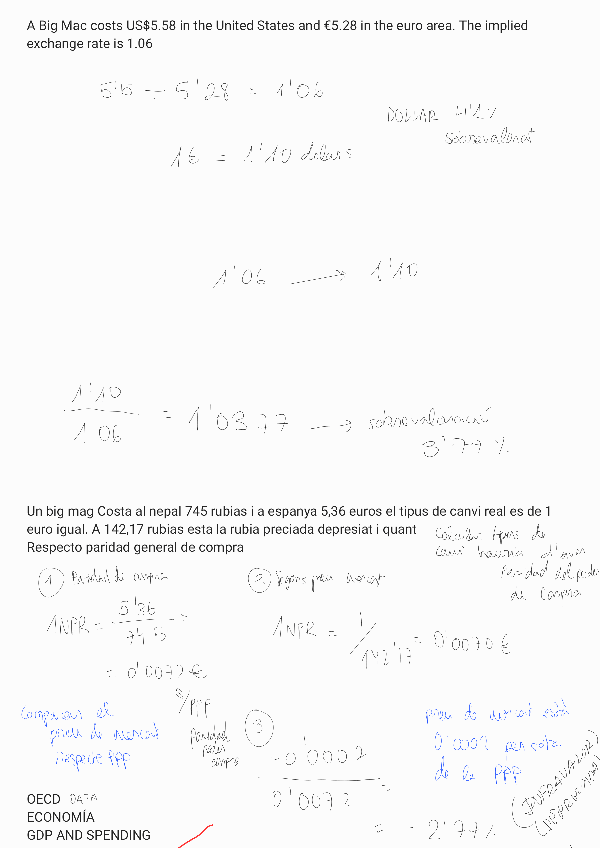 A Big Mac costs US$5.58 in the United States and €5.28 in the euro area. The implied
exchange rate is 1.06
5'28 = 1'06
DOLLAR
sobrevalorat
1€ = 1'10 dolars
1'06 → 1'10
1'10
1'06
= 1'0377 → sobrevaloració
3'77 %
Un big mag Costa al nepal 745 rubias i a espanya 5,36 euros el tipus de canvi real es de 1
euro igual. A 142,17 rubias esta la rubia preciada depresiat i quant
Respecto paridad general de compra
Calcular tipus de
canvi hauria d'aver
Paridad del poder
de Compra
① Paridad de compra
② Segons preu mercat
1NPR = 5'36
745
= 0'0072 €
1NPR = 1/142'17 = 0'0070 €
Comparar el
preu de mercat
respecte PPP
$/PPP
Paridad
poder
compra
③
-0'0002
0'0072
=
= -2'77%
preu de mercat està
0'0002 per sota
de la PPP
(INFRAVALORAT)
OECD DATA
ECONOMÍA
GDP AND SPENDING